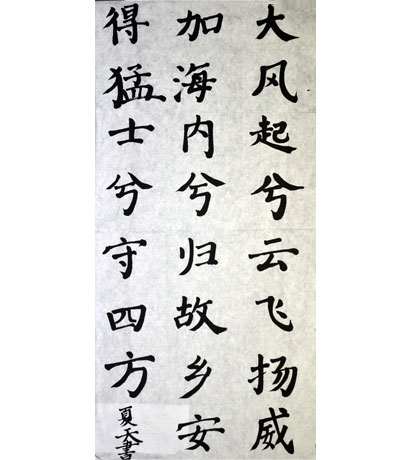 大风起兮云飞扬威
加海内兮归故乡安
得猛士兮守四方
夏天書